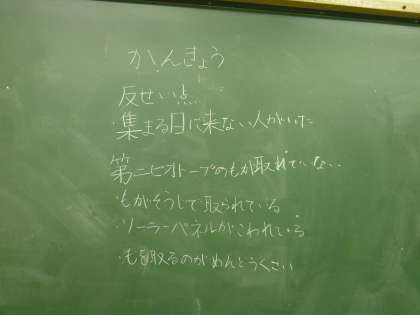 かんきょう
反せい点
・集まる日に来ない人がいた
第二ビオトープのもが取れていない
・もがそうじで取られている
・ソーラーパネルがこわれている
・もを取るのがめんどうくさい